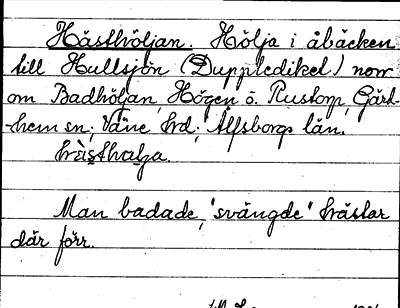 Hästhöljan. Hölja i åbäcken
till Hullsjön (Duppledikel) norr
om Badhöljan, Högen ö. Rustorp, Gärd-
hem sn; Väne hd; Älfsborgs län.
hästhølja.
Man badade, "svängde" hästar
där förr.